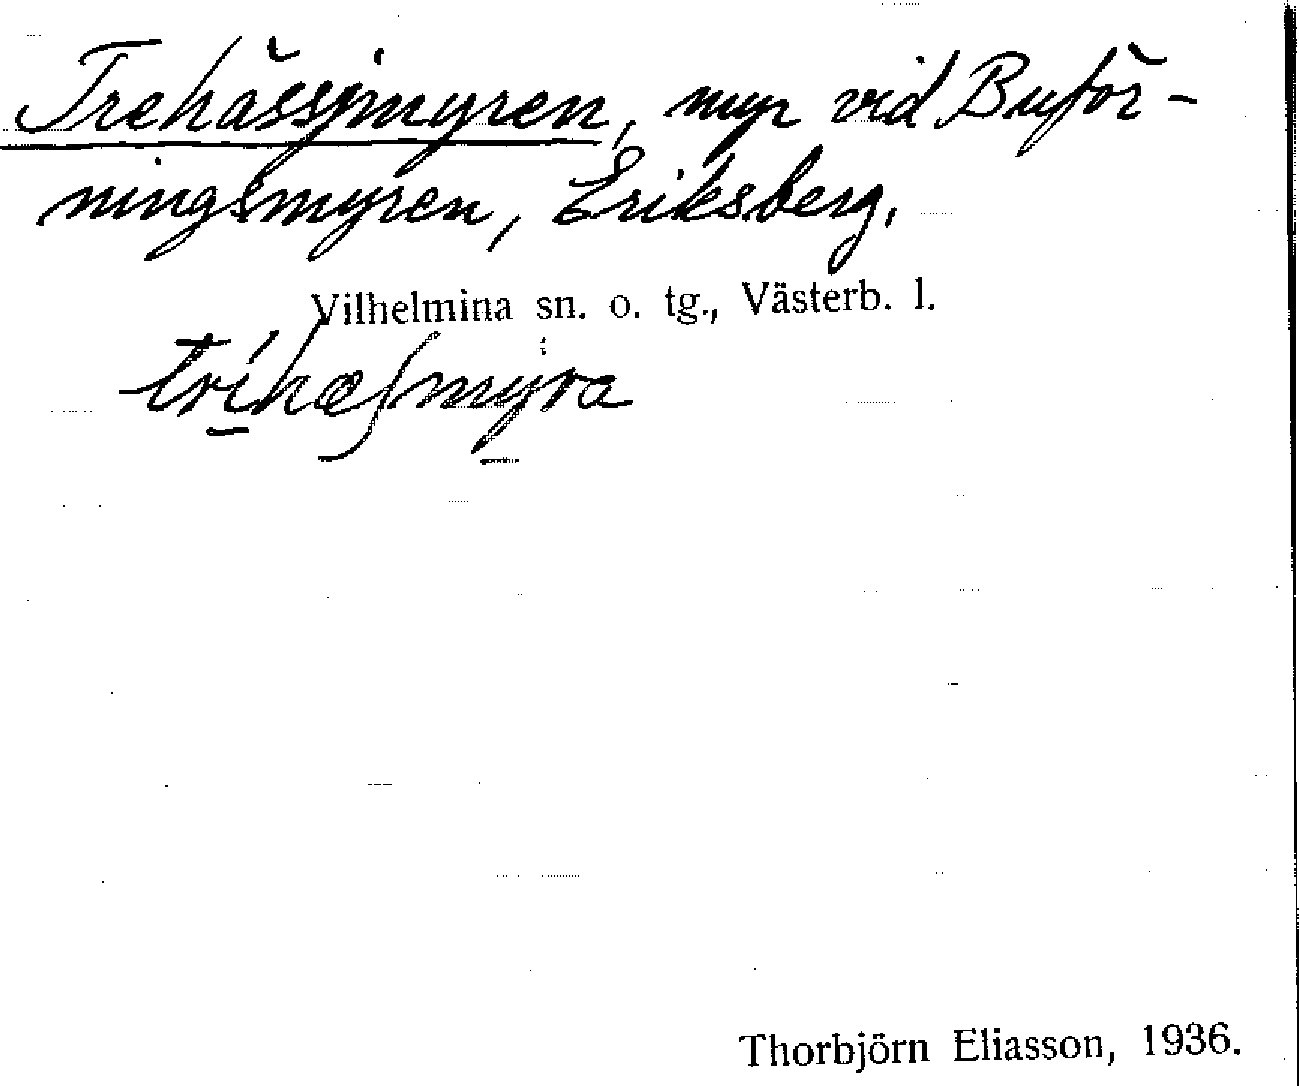 Trehässjmyren, myr vid Buför-
ningsmyren, Eriksberg.
Vilhelmina sn. o. tg., Västerb. l.
Thorbjörn Eliasson, 1936.